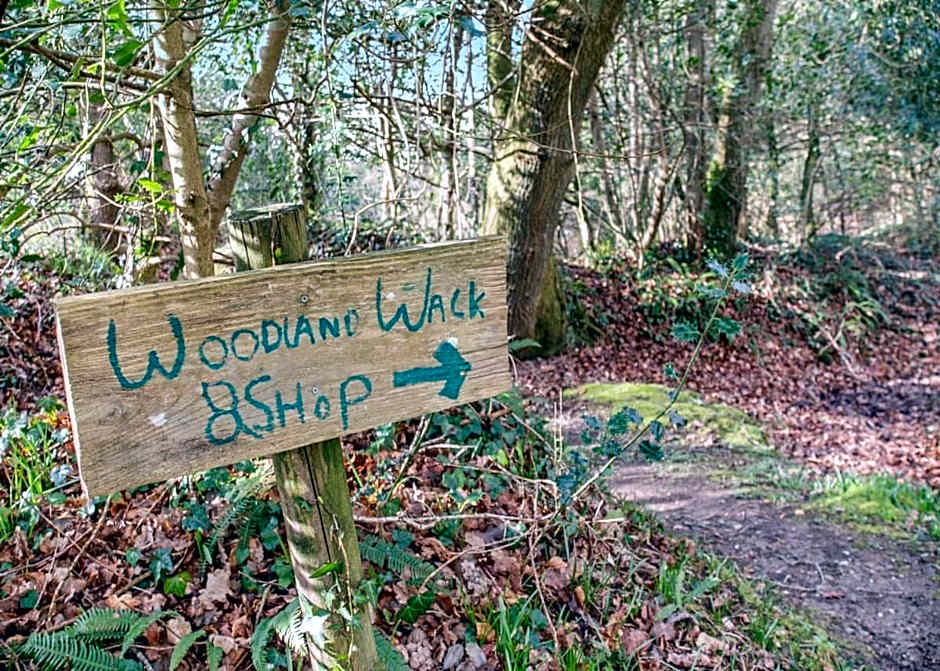 Woodland Walk
& Shop →